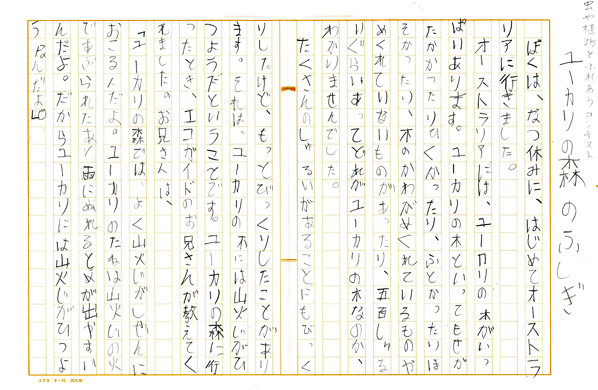 虫や植物とふれあうコンテスト
ユーカリの森のふしぎ
ぼくは、なつ休みに、はじめてオーストラ
リアに行きました。
オーストラリアには、ユーカリの木がいっ
ぱいあります。ユーカリの木といってもせが
たかかったりひくかったり、ふとかったりほ
そかったり、木のかわがめくれているものや
めくれていないものがあったり、五百しゅる
いぐらいあってどれがユーカリの木なのか、
わかりませんでした。
たくさんのしゅるいがあることにもびっく
りしたけど、もっとびっくりしたことがあり
ます。それは、ユーカリの木には山火じがひ
つようだということです。ユーカリの森に行
ったとき、エコガイドのお兄さんが教えてく
れました。お兄さんは、
「ユーカリの森では、よく山火じがしぜんに
おこるんだよ。ユーカリのたねは山火じの火
であぶられたあと雨にぬれるとめが出やすい
んだよ。だからユーカリには山火じがひつよ
うなんだよ」。